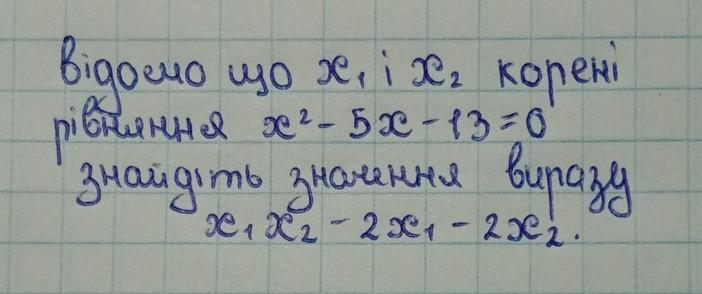 відомо що x₁ і x₂ корені
рівняння x² - 5x - 13 = 0
знайдіть значення виразу
x₁x₂ - 2x₁ - 2x₂.